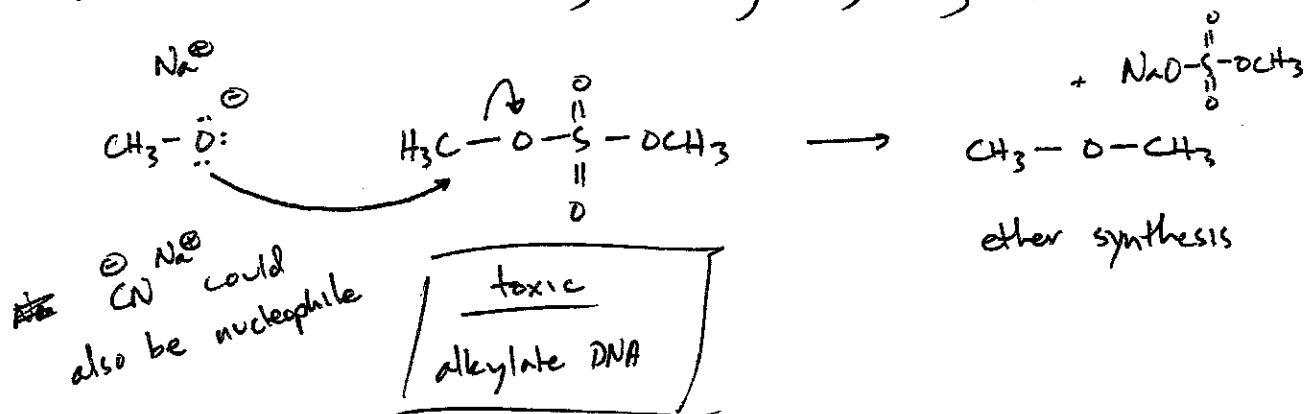 Na⊕
CH3–Ö:⊖
H3C–O–S–OCH3
O
O
→
+ NaO–S–OCH3
O
O
CH3–O–CH3
ether synthesis
⊖CN Na⊕ could
also be nucleophile
toxic
alkylate DNA